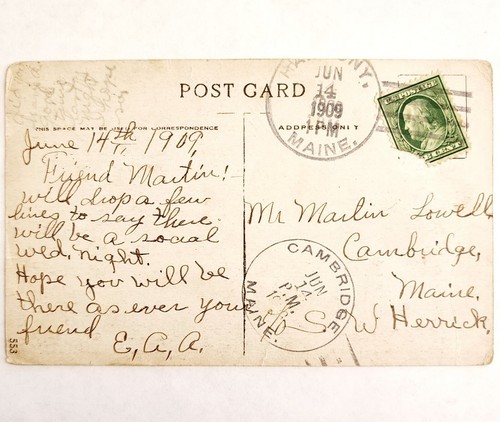 POST CARD
THIS SPACE MAY BE USED FOR CORRESPONDENCE
ADDRESS ONLY
June 14th, 1909,
Friend Martin!-
will drop a few
lines to say there
will be a social
wed, night.
Hope you will be
there as ever your
friend
E, A, A.
HARMONY,
JUN
14
1909
PM
MAINE.
U.S. POSTAGE
Mr Marlin Lowell
Cambridge,
Maine.
S. W Herrick,
CAMBRIDGE
JUN
14
P.M.
MAINE.
553